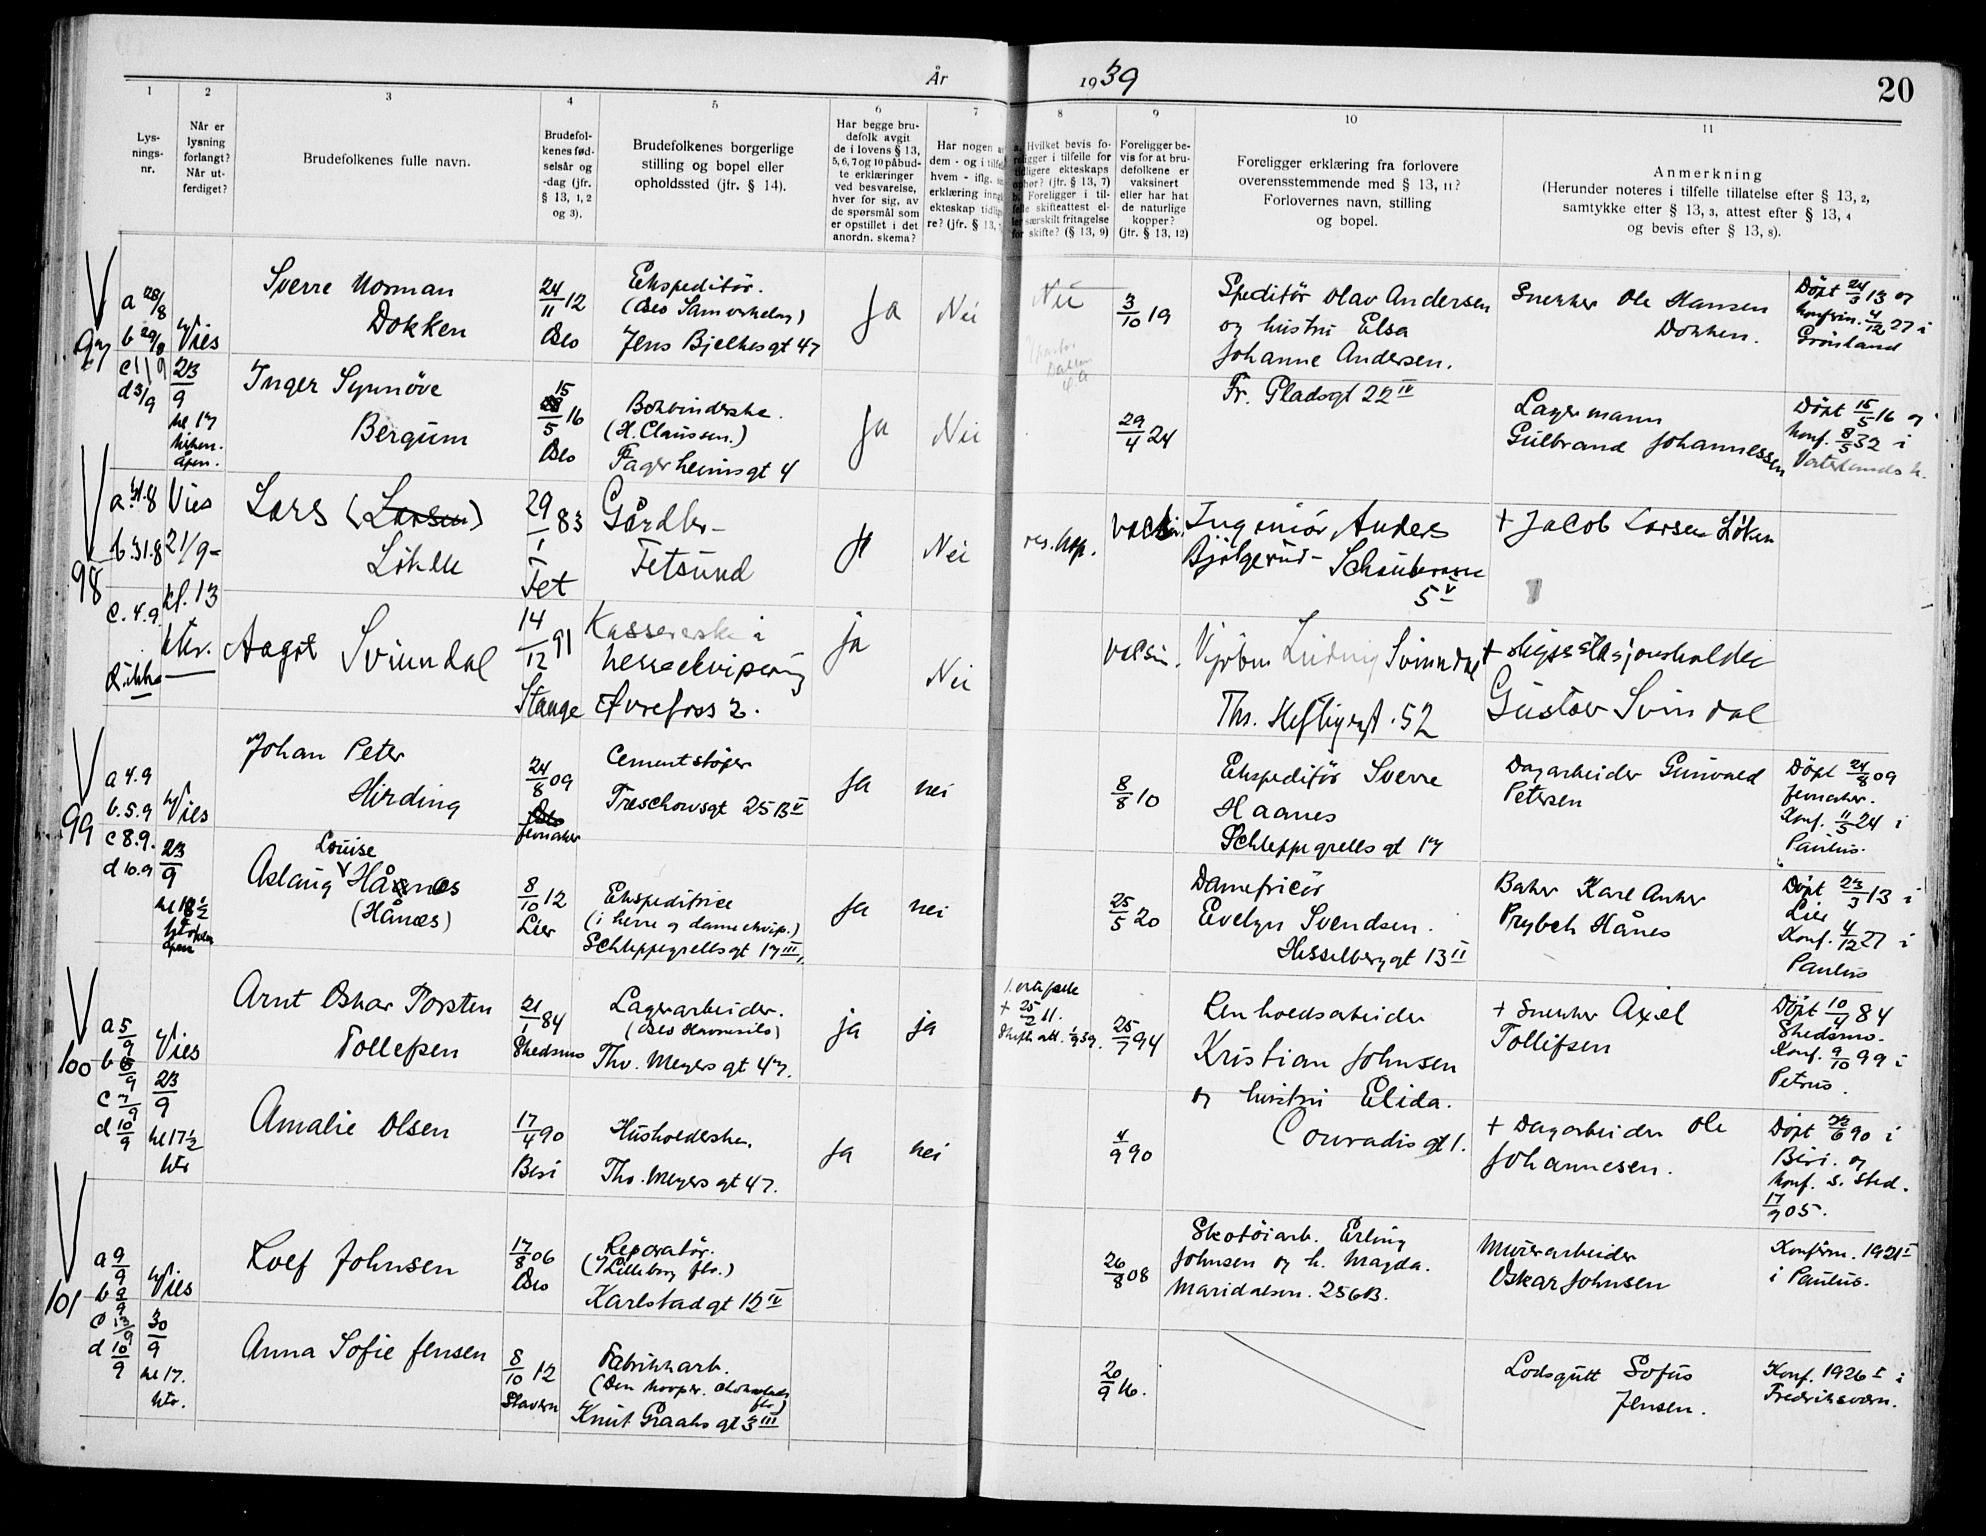 År 1939
20
1
2
3
4
5
6
7
8
9
10
11
Lys-
nings-
nr.
Når er
lysning
forlangt?
Når ut-
ferdiget?
Brudefolkenes fulle navn.
Brudefol-
kenes fød-
selsår og
-dag (jfr.
§ 13, 1, 2
og 3).
Brudefolkenes borgerlige
stilling og bopel eller
opholdssted (jfr. § 14).
Har begge bru-
defolk avgit
de i lovens § 13,
5, 6, 7 og 10 påbud-
te erklæringer
ved besvarelse,
hver for sig, av
de spørsmål som
er opstillet i det
anordn. skema?
Har nogen
dem - og i
hvem - iflg.
erklæring
ekteskap
re? (jfr. § 13,
a. Hvilket bevis fo-
religger i tilfelle for
tidligere ekteskaps
ophør? (jfr. § 13, 7)
b. Foreligger i til-
felle skifteattest el-
ler særskilt fritagelse
for skifte? (§ 13, 9)
Foreligger be-
vis for at bru-
defolkene er
vaksinert
eller har hat
de naturlige
kopper?
(jfr. § 13, 12)
Foreligger erklæring fra forlovere
overensstemmende med § 13, 11?
Forlovernes navn, stilling
og bopel.
Anmerkning
(Herunder noteres i tilfelle tillatelse efter § 13, 2,
samtykke efter § 13, 3, attest efter § 13, 4
og bevis efter § 13, 8).
97
a 28/8
b 29/8
c 1/9
d 3/9
Vies
23/9
kl 17
Sverre Norman
Dokken
24/11 12
Oslo
Ekspeditør.
Jens Bjelkesgt 47
Ja
Nei
Nei
3/10 19
Speditør Olav Andersen
og hustru Elsa
Johanne Andersen.
Fr. Pladsgt 22 IV
Snekker Ole Hansen
Dokken.
Døpt 24/3 13 og
konfirm. 4/12 27 i
Grønland
Inger Synnøve
Bergum
15/5 16
Oslo
Bokbinderske.
(H. Claussen.)
Fagerheimsgt 4
Ja
Nei
29/4 24
Lagermann
Gulbrand Johannessen
Døpt 15/5 16 og
konf. 8/5 32 i
98
a 31.8
b 31.8
c. 4.9.
Vies
21/9-
kl. 13
Lars (Larsen)
Løken
29/1 83
Fet
Gårdbr-
Fetsund
Ja
Nei
vaksin.
Ingeniør Anders
Bjølgerud-
5 V
+ Jacob Larsen Løken
Aagot Svinndal
14/12 91
Stange
Kassererske i
herreekvipering
Øvrefoss 2.
ja
Nei
vaksin.
Ludvig Svinndal
Ths. Heftyesgt. 52
Gustav Svindal
99
a 4.9
b. 5.9
c 8.9.
d 10.9
Vies
23/9
Johan Peter
Hirding
24/8 09
Jevnaker
Cementstøper
Treschowsgt 25 B II
Ja
nei
8/8 10
Ekspeditør Sverre
Haanes
Schleppegrellsgt 17
Dagarbeider Gunvald
Petersen
Døpt 24/8 09
Jevnaker.
Konf. 11/5 24 i
Paulus.
Louise
Aslaug Hånes
(Hånæs)
8/10 12
Lier
Ekspeditrice
(i herre og dameekvip.)
Schleppegrellsgt 17 III
Ja
nei
25/5 20
Damefrisør
Evelyn Svendsen.
Hesselberggt 13 II
Baker Karl Anker
Prytech Hånes
Døpt 23/3 13 i
Lier
Konf. 4/12 27 i
Paulus
100
a 5/9
b 6/9
c 7/9
d 10/9
Vies
23/9
kl 17 1/2
ktr
Arnt Oskar Torsten
Tollefsen
21/1 84
Skedsmo
Lagerarbeider.
(Oslo Havnesilo)
Thv. Meyersgt 47.
ja
ja
+ 25/2 11.
25/7 94
Renholdsarbeider
Kristian Johnsen
og hustru Elida.
Conradisgt 1.
+ Snekker Axel
Tollefsen
Døpt 10/4 84
Skedsmo.
Konf. 9/10 99 i
Petrus.
Amalie Olsen
17/4 90
Biri
Husholderske.
Thv. Meyersgt 47.
Ja
nei
4/9 90
+ Dagarbeider Ole
Johannesen.
Døpt 22/6 90 i
Biri. og
konf. s. sted.
17/9 05.
101
a 9/9
b 9/9
c 13/9
d 10/9
Vies
30/9
kl 17.
ktr.
Rolf Johnsen
17/8 06
Oslo
Reparatør.
(Lilleborg fbr.)
Karlstadgt 12 IV
26/8 08
Skotøiarb. Erling
Johnsen og h. Magda.
Maridalsvn. 256B.
Murerarbeider
Oskar Johnsen
Konfirm. 1921 I
i Paulus.
Anna Sofie Jensen
8/10 12
Stavern
Fabrikkarb.
(Den kooper. chokolade
fbr.)
Knut Graahsgt 3 III
20/9 16.
Losgutt Sofus
Jensen.
Konf. 1926 I i
Fredriksværn.